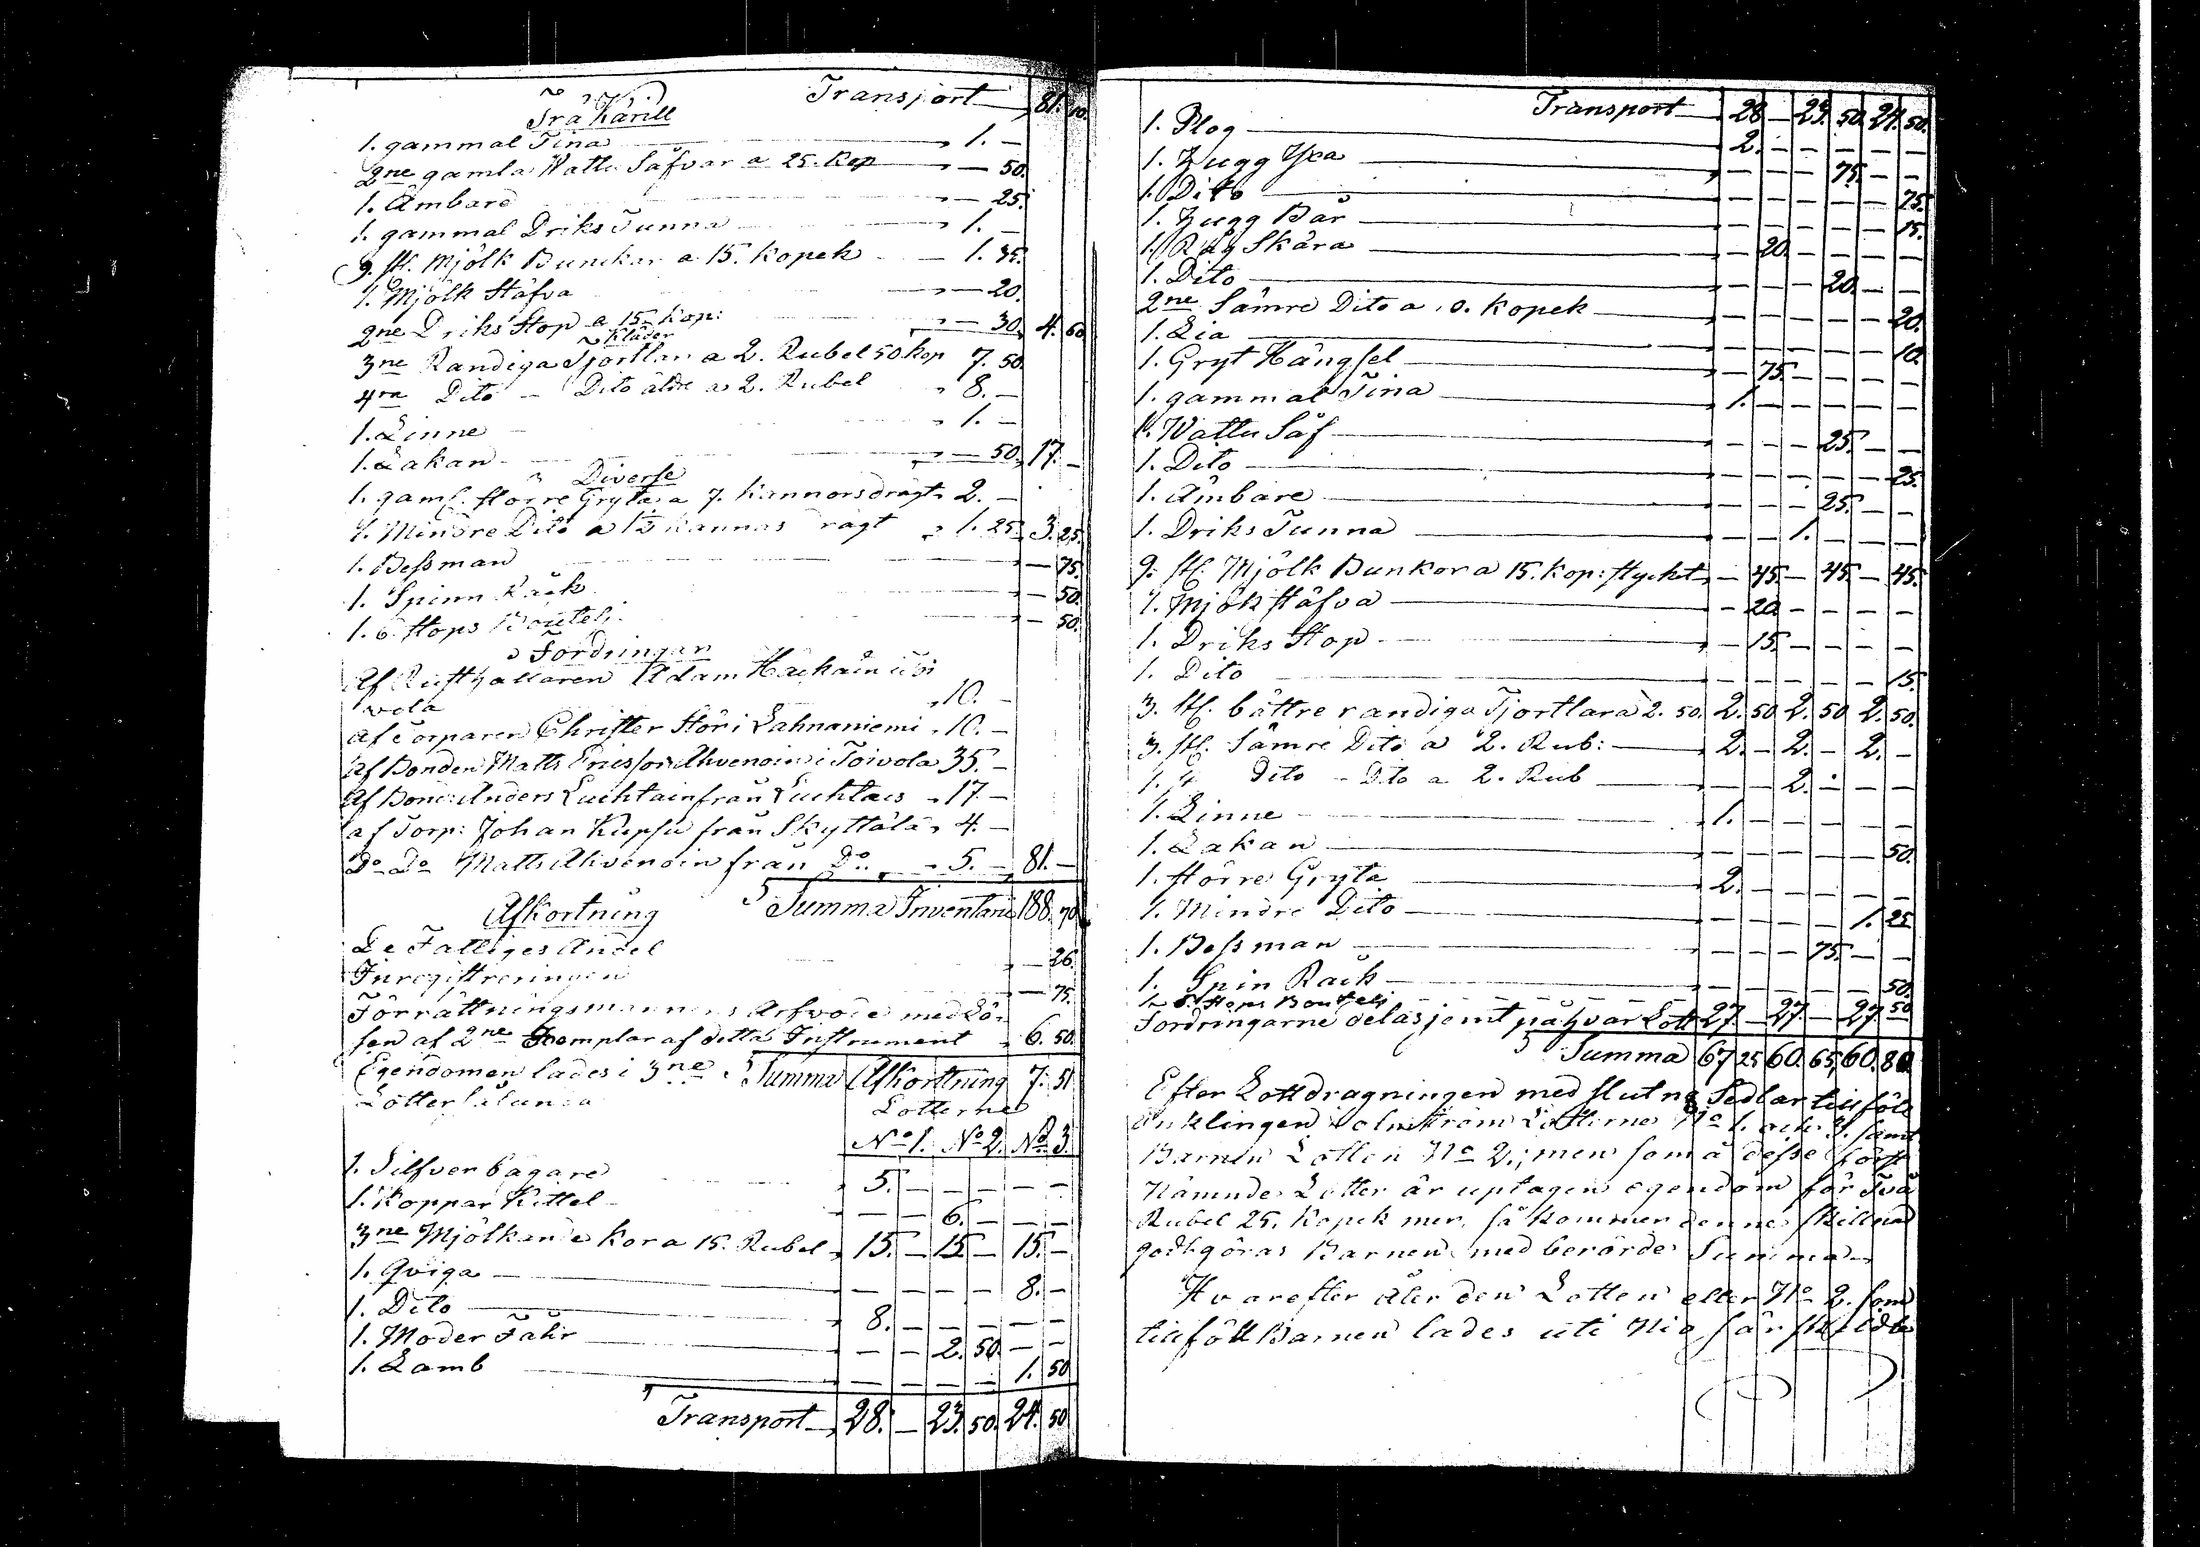 Transport 81. 10.
Trä Käril
1. gammal Tina 1. —
2ne gamla Wattu Såfvar a 25. Kop — 50.
1. Ämbare — 25.
1. gammal Driks Tunna 1. —
9. st. Mjölk Bunckar a 15. Kopek 1. 35.
1. Mjölk Stäfva — 20.
2ne Driks Stop a 15. Kop: — 30. 4. 60
Kläder
3ne Randiga Tjortlar a 2. Rubel 50 Kop 7. 50.
4ra Dito — Dito äldre a 2. Rubel 8. —
1. Linne 1. —
1. Lakan — 50. 17. —
Diverse
1. gaml. större Gryta a 7. Kannors drägt 2. —
1. Mindre Dito a 1½ Kannas drägt 1. 25. 3. 25.
1. Bessman — 75.
1. Spinn Råck — 50.
1. 6. Stops Boutelj. — 50.
Fordringar
Af Rusthållaren Adam Hackain i
vola 10. —
af Torparen Christer Stör i Lahnaniemi 10. —
Af Bonden Matts Ericsson Ahvenoin i Toivola 35. —
Af Bond: Anders Luchtain från Luchtais 17. —
af Torp: Johan Kupsu från Skyttälä 4. —
Do Do Matts Ahvenoin från Do 5. — 81. —
Summa Inventarii 188. 70.
Afkortning
De Fattiges Andel — 26.
Inregistreringen — 75.
Förrättningsmannens Arfvode med Lö-
sen af 2ne Exemplar af detta Instrument 6. 50.
Summa Afkortning 7. 51.
Egendomen lades i 3ne
Lotter sålunda
Lotterne
No 1. No 2. No 3.
1. Silfver bägare 5. — — — — —
1. Koppar Kittel — — 6. — — —
3ne Mjölkande Kor a 15. Rubel 15. — 15. — 15. —
1. Qviga — — — — 8. —
1. Dito 8. — — — — —
1. Moder Fåhr — — 2. 50. — —
1. Lamb — — — — 1. 50
Transport 28. — 23. 50. 24. 50.
Transport 28 — 23. 50. 24. 50.
1. Plog 2. — — — — —
1. Hugg Yxa — — — 75. — —
1. Dito — — — — — 75.
1. Hugg Bår — — — — — 15.
1. Råg Skära — 20. — — — —
1. Dito — — — 20. — —
2ne Sämre Dito a 10. Kopek — — — — — 20.
1. Lia — — — — — 10.
1. Gryt Hängsel — 75. — — — —
1. gammal Tina 1. — — — — —
1. Wattu Såf — — — 25. — —
1. Dito — — — — — 25.
1. Ämbare — — — 25. — —
1. Driks Tunna — — 1. — — —
9. st. Mjölk Bunkor a 15. Kop: stycket — 45. — 45. — 45.
1. Mjölk Stäfva — 20. — — — —
1. Driks Stop — 15. — — — —
1. Dito — — — — — 15.
3. st. bättre randiga Tjortlar a 2. 50. 2. 50. 2. 50. 2. 50.
3. st. Sämre Dito a 2. Rub: 2. — 2. — 2. —
1. Dito — Dito a 2. Rub — — 2. — — —
1. Linne 1. — — — — —
1. Lakan — — — — — 50.
1. Större Gryta 2. — — — — —
1. Mindre Dito — — — — 1. 25.
1. Bessman — — — 75. — —
1. Spin Råck — — — — — 50.
1. 6. Stops Boutelj 50
Fordringarne delas jemt på hvar Lott 27. — 27 — 27
Summa 67 25 60. 65. 60. 80.
Efter Lottdragningen med slutna Sedlar tillföll
Enklingen Holmström Lotterne No 1. och 3. samt
Barnen Lotten No 2.; men som å desse först
Nämnde Lotter är uptagen egendom för Två
Rubel 25. Kopek mer, så kommer denne skillnad
godtgöras Barnen med berörde Summa.
Hvarefter åter den Lotten eller No 2. som
tillföll Barnen lades uti Nio särskildte